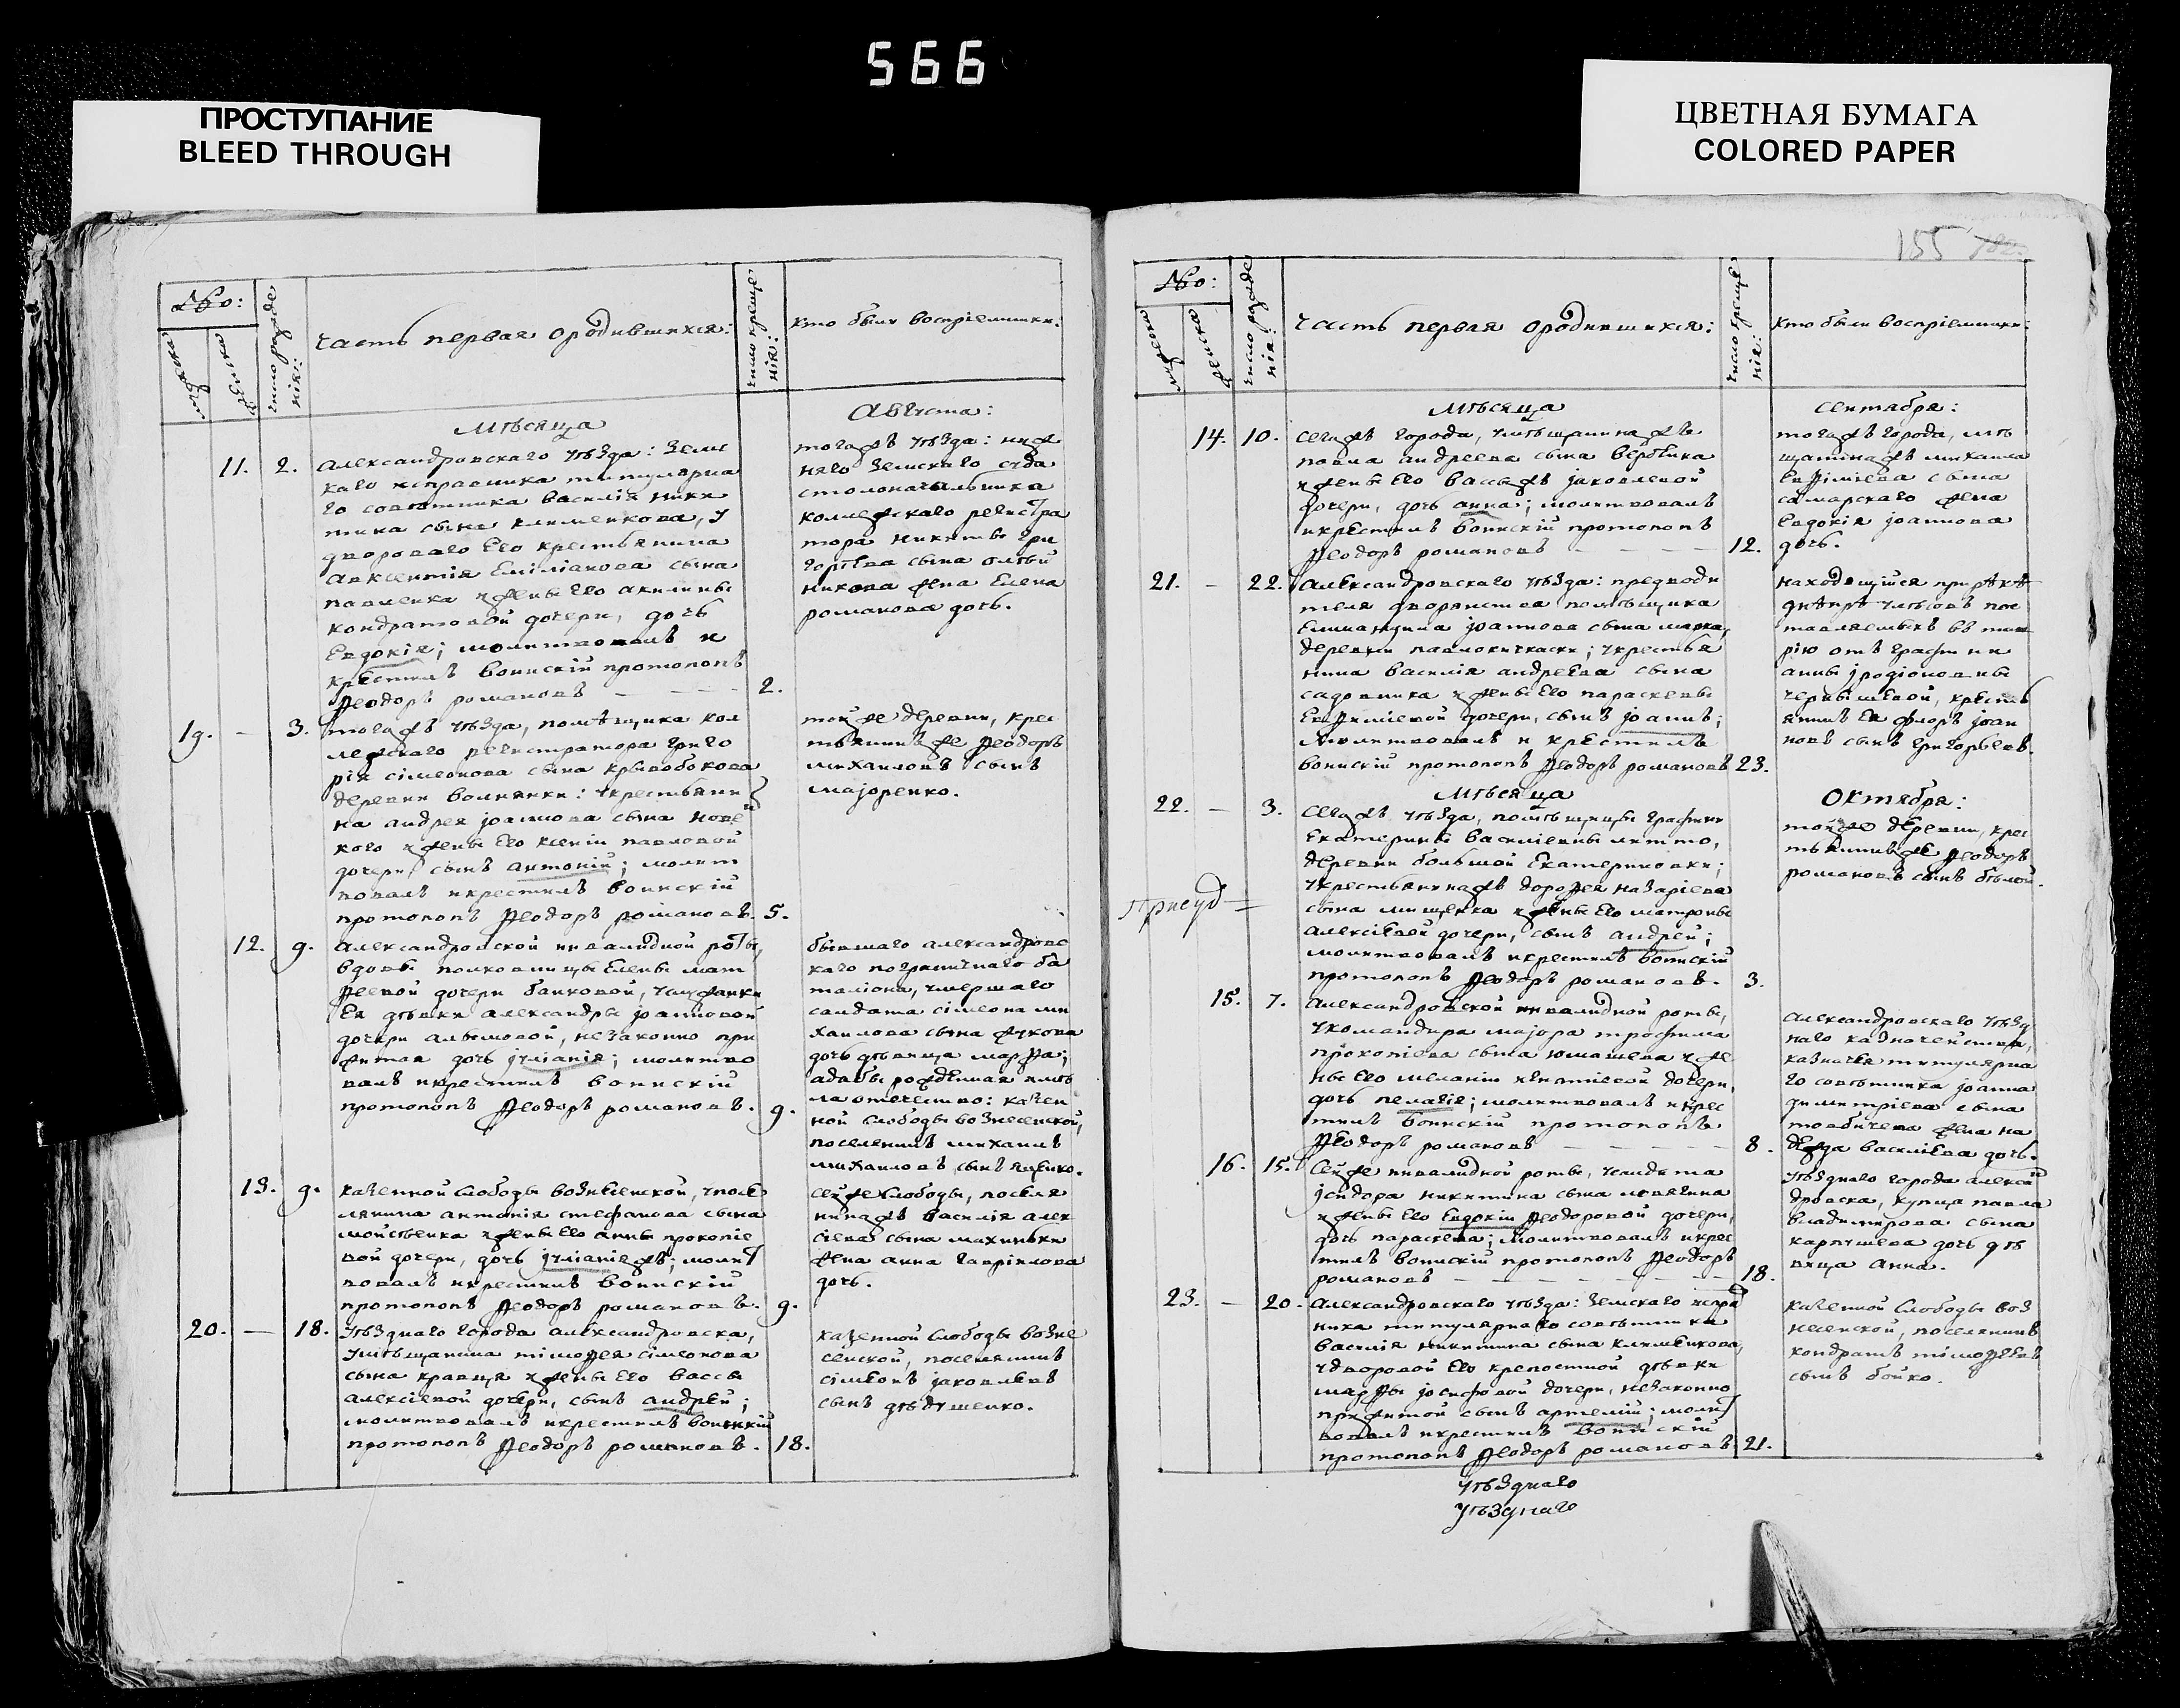 566
ПРОСТУПАНИЕ
BLEED THROUGH
ЦВЕТНАЯ БУМАГА
COLORED PAPER
155
No:
число рожде
нія:
часть первая ородившихся:
число креще
нія:
кто были воспріемники:
Мѣсяца
Августа:
11. 2.
александровскаго уѣзда: земс
каго исправника титулярна
го советника василія ники
тина сына клименкова, у
двороваго его крестьянина
авксентія еміліанова сына
павленка ижены его акилины
кондратовой дочери, дочь
евдокія; молитвовалъ и
крестилъ воинскій протопопъ
Ѳеодоръ романовъ — — — 2.
тогожъ уѣзда: ниж
няго земскаго суда
столоначальника
коллежскаго регистра
тора никиты гри
горіева сына олѣй
никова жена елена
романова дочь.
19. — 3.
тогожъ уѣзда, помѣщика кол
лежскаго регистратора григо
рія сімеонова сына кривобокова
деревни волнянки: укрестьяни
на андрея іоаннова сына нове
кого ижены его ксеніи павловой
дочери, сынъ антоній; молит
вовалъ икрестилъ воинскій
протопопъ Ѳеодоръ романовъ. 5.
тойже деревни, крес
тьянинъже Ѳеодоръ
михаиловъ сынъ
маіоренко.
12. 9.
александровской инвалидной роты,
вдовы полковницы елены мат
ѳеевой дочери банковой, услужанки
ея дѣвки александры іоанновой
дочери алымовой, незаконно при
житая дочь іуліанія; молитво
валъ икрестилъ воинскій
протопопъ Ѳеодоръ романовъ. 9.
бывшаго александровс
каго пограничнаго ба
таліона, умершаго
салдата сімеона ми
хаилова сына жукова
дочь дѣвица марѳа;
адабы рожденная имѣ
ла отечество: казен
ной слободы вознесенской,
поселенинъ михаилъ
михаиловъ сынъ яценко.
13. 9.
казенной слободы вознесенской, упосе
лянина антонія стефанова сына
мойсѣенка ижены его анны прокопіе
вой дочери, дочь іуліаніяжъ; молит
вовалъ икрестилъ воинскій
протопопъ Ѳеодоръ романовъ. 9.
сейже слободы, поселя
нинажъ василія алек
сіева сына махиньки
жена анна гавріилова
дочь.
20. — 18.
уѣзднаго города александровска,
умѣщанина тімоѳея сімеонова
сына кравця ижены его вассы
алексіевой дочери, сынъ андрей;
молитвовалъ икрестилъ воинскій
протопопъ Ѳеодоръ романовъ. 18.
казенной слободы возне
сенской, поселянинъ
сімеонъ іаковлевъ
сынъ дѣдушенко.
No:
число рожде
нія:
часть первая ородившихся:
число креще
нія:
кто были воспріемники:
Мѣсяца
Сентября:
14. 10.
сегожъ города, умѣщанинажъ
павла андреева сына вербѣика
ижены его вассыжъ іаковлевой
дочери, дочь анна; молитвовалъ
икрестилъ воинскій протопопъ
Ѳеодоръ романовъ — — — — 12.
тогожъ города, мѣ
щанинажъ михаила
евѳиміева сына
самарскаго жена
евдокія іоаннова
дочь.
21. — 22.
александровскаго уѣзда: предводи
теля дворянства помѣщика
іоаннова сына марка,
деревни павлокичкаски; укрестья
нина василія андреева сына
садовника ижены его параскевы
евѳиміевой дочери, сынъ іоаннъ;
молитвовалъ и крестилъ
воинскій протопопъ Ѳеодоръ романовъ 23.
находящійся при рѣкѣ
днѣпрѣ улѣсовъ пос
тавляемыхъ въ тав
рію отъ графини
анны іродіоновны
чернышевой, кресть
янинъ ея флоръ іоан
новъ сынъ григорьевъ.
Мѣсяца
Октября:
22. — 3.
сегожъ уѣзда, помѣщицы графини
екатерины василіевны литто,
деревни большой екатериновки;
укрестьянинажъ дороѳея назаріева
сына мищенка ижены его матроны
алексіевой дочери, сынъ андрей;
молитвовалъ икрестилъ воинскій
протопопъ Ѳеодоръ романовъ. 3.
тойже деревни, крес
тьянинъже Ѳеодоръ
романовъ сынъ бѣлой.
15. 7.
александровской инвалидной роты,
укомандира маіора трофима
прокопіева сына юмашева ижe
ны его меланіи игнатіевой дочери,
дочь пелагія; молитвовалъ икрес
тилъ воинскій протопопъ
Ѳеодоръ романовъ — — — — 8.
александровскаго уѣзд
наго казначейства,
казначея титулярна
го совѣтника іоанна
димитріева сына
товбичева жена на
дежда василіева дочь.
16. 15.
сейже инвалидной роты, усалдата
ісидора никитина сына ловягина
ижены его евдокіи Ѳеодоровой дочери,
дочь параскева; молитвовалъ икрес
тилъ воинскій протопопъ Ѳеодоръ
романовъ — — — — — — 18.
уѣзднаго города алексан
дровска, купца павла
владимирова сына
карпушева дочь дѣ
вица анна.
23. — 20.
александровскаго уѣзда: земскаго испра
ника титулярнаго совѣтника
василія никитина сына клименкова,
удворовой его крепостной дѣвки
марѳы іосифовой дочери, незаконно
прижитой сынъ артемій; молит
вовалъ икрестилъ воинскій
протопопъ Ѳеодоръ романовъ 21.
казенной слободы воз
несенской, поселянинъ
кондратъ тімоѳеевъ
сынъ бойко.
уѣзднаго
Уѣзднаго